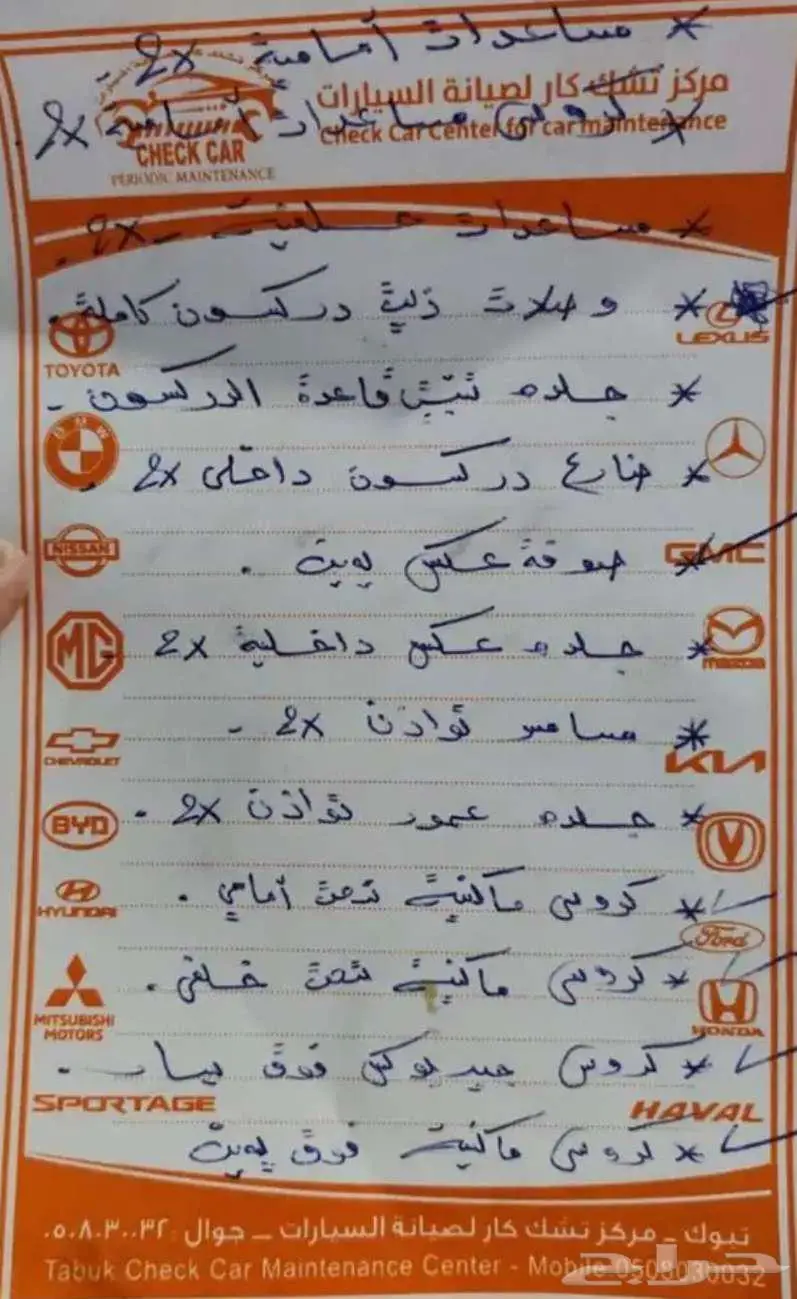 * مساعدات أمامية 2x
مركز تشك كار لصيانة السيارات
* كروسي مساعدات أمامية 2x
Check Car Center for car maintenance
CHECK CAR
PERIODIC MAINTENANCE
* مساعدات خلفية - 2x - .
* وصلات ذيت دركسون كاملة .
LEXUS
TOYOTA
* جلده تثبيت قاعدة الدركسون -
BMW
* ضارع دركسون داخلي 2x
NISSAN
* صوفة عكس يمين .
GMC
MG
* جلده عكس داخلية 2x
mazda
* مسامير توازن 2x -
CHEVROLET
KIA
BYD
* جلده عمود توازن 2x .
HYUNDAI
* كروسي ماكنية تحت أمامي .
Ford
* كروسي ماكنية تحت خلفي .
MITSUBISHI
MOTORS
HONDA
* كروسي جيربوكس فوق يسار .
SPORTAGE
HAVAL
* كروسي ماكنية فوق يمين
تبوك - مركز تشك كار لصيانة السيارات - جوال ٠٥٠٨٠٣٠٠٣٢
Tabuk Check Car Maintenance Center - Mobile 0508030032
حراج